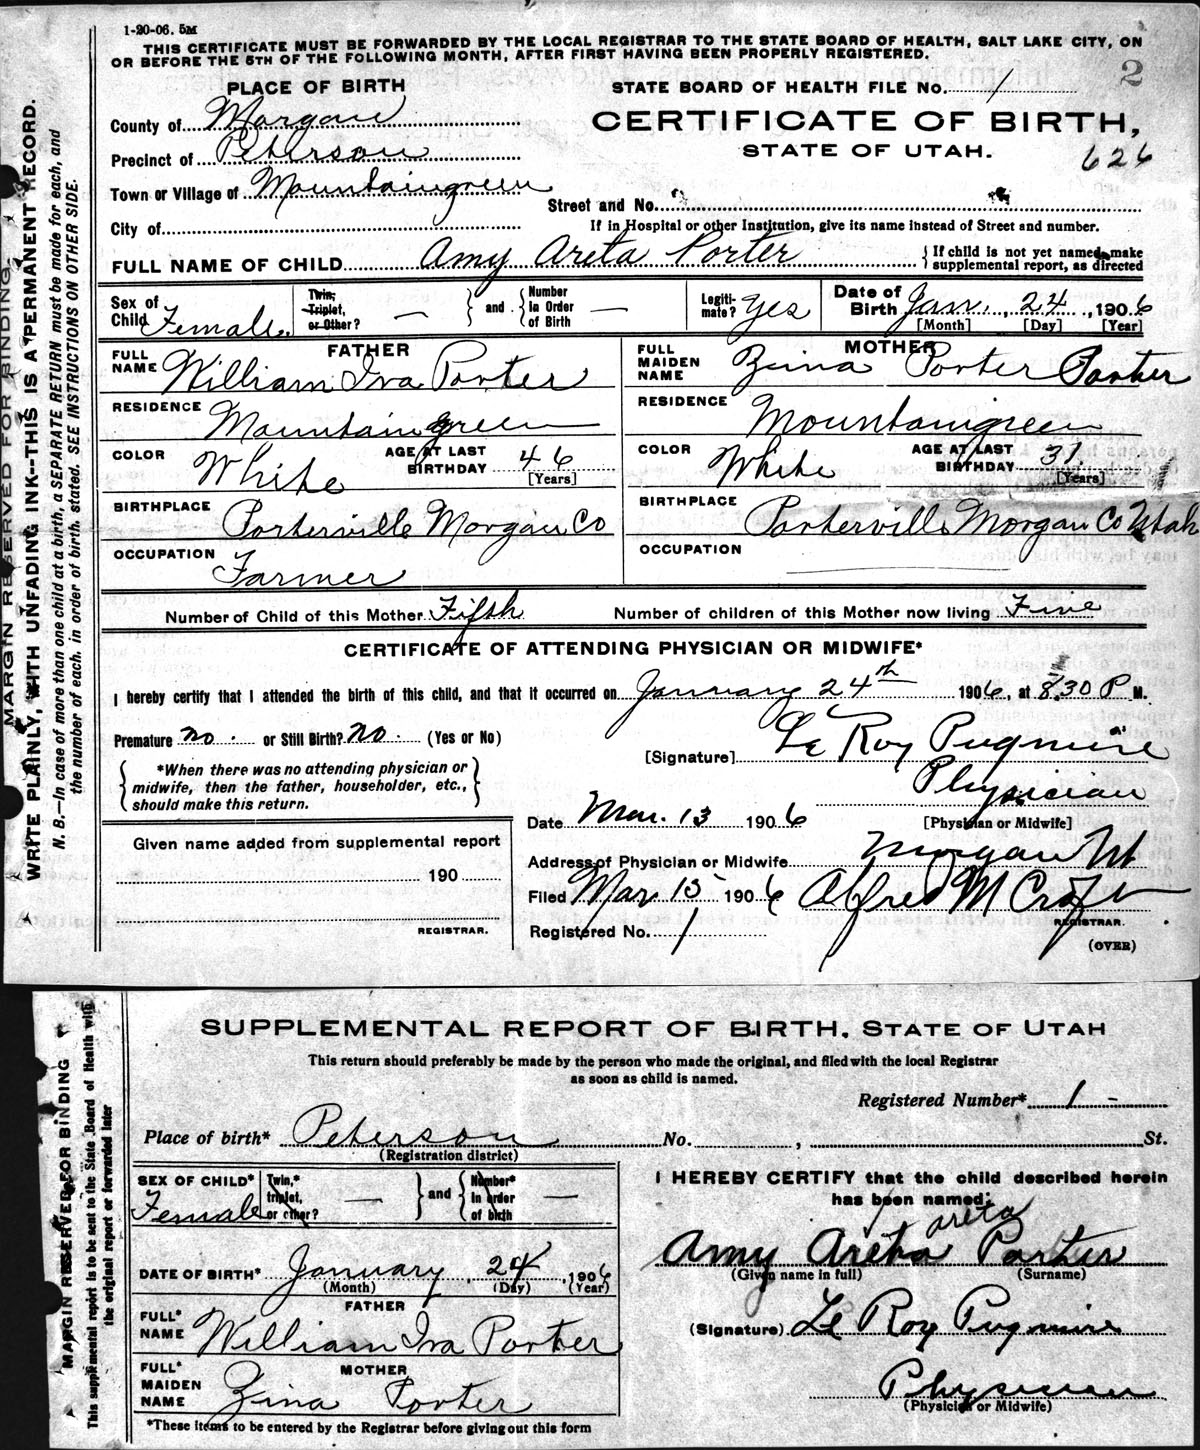 1-20-06. 5M
THIS CERTIFICATE MUST BE FORWARDED BY THE LOCAL REGISTRAR TO THE STATE BOARD OF HEALTH, SALT LAKE CITY, ON
OR BEFORE THE 5TH OF THE FOLLOWING MONTH, AFTER FIRST HAVING BEEN PROPERLY REGISTERED.
2
PLACE OF BIRTH
STATE BOARD OF HEALTH FILE No. 1
County of Morgan
CERTIFICATE OF BIRTH,
Precinct of Peterson
STATE OF UTAH.
626
Town or Village of Mountaingreen
Street and No.
City of
If in Hospital or other Institution, give its name instead of Street and number.
FULL NAME OF CHILD Amy Areta Porter
{ If child is not yet named, make
supplemental report, as directed
Sex of Child Female
Twin, Triplet, or Other? —
and
Number in Order of Birth —
Legiti-mate? Yes
Date of Birth Jan. 24, 1906
[Month] [Day] [Year]
FATHER
FULL NAME William Iva Porter
MOTHER
FULL MAIDEN NAME Zina Porter Porter
RESIDENCE Mountaingreen
RESIDENCE Mountaingreen
COLOR White
AGE AT LAST BIRTHDAY 46
[Years]
COLOR White
AGE AT LAST BIRTHDAY 37
[Years]
BIRTHPLACE Porterville Morgan Co
BIRTHPLACE Porterville Morgan Co Utah
OCCUPATION Farmer
OCCUPATION
Number of Child of this Mother Fifth
Number of children of this Mother now living Five
CERTIFICATE OF ATTENDING PHYSICIAN OR MIDWIFE*
I hereby certify that I attended the birth of this child, and that it occurred on January 24th 1906, at 8,30 P M.
Premature no. or Still Birth? no. (Yes or No)
[Signature] Le Roy Pugmire
*When there was no attending physician or
midwife, then the father, householder, etc.,
should make this return.
Physician
[Physician or Midwife]
Date Mar. 13 1906
Given name added from supplemental report
190
REGISTRAR.
Address of Physician or Midwife Morgan Ut
Filed Mar 15 1906 Alfred M Croft
REGISTRAR.
Registered No. 1
(OVER)
MARGIN RESERVED FOR BINDING
WRITE PLAINLY, WITH UNFADING INK--THIS IS A PERMANENT RECORD.
N. B.—In case of more than one child at a birth, a SEPARATE RETURN must be made for each, and
the number of each, in order of birth, stated. SEE INSTRUCTIONS ON OTHER SIDE.
SUPPLEMENTAL REPORT OF BIRTH, STATE OF UTAH
This return should preferably be made by the person who made the original, and filed with the local Registrar
as soon as child is named.
Registered Number* 1 -
Place of birth* Peterson No. , St.
(Registration district)
SEX OF CHILD* Female
Twin,* triplet, or other? —
and
Number* in order of birth —
I HEREBY CERTIFY that the child described herein
has been named:
areta
Amy Areta Porter
(Given name in full) (Surname)
DATE OF BIRTH* January 24, 1906
(Month) (Day) (Year)
FATHER
FULL* NAME William Iva Porter
(Signature) Le Roy Pugmire
MOTHER
FULL* MAIDEN NAME Zina Porter
Physician
(Physician or Midwife)
*These items to be entered by the Registrar before giving out this form
MARGIN RESERVED FOR BINDING
This supplemental report is to be sent to the State Board of Health with
the original report or forwarded later